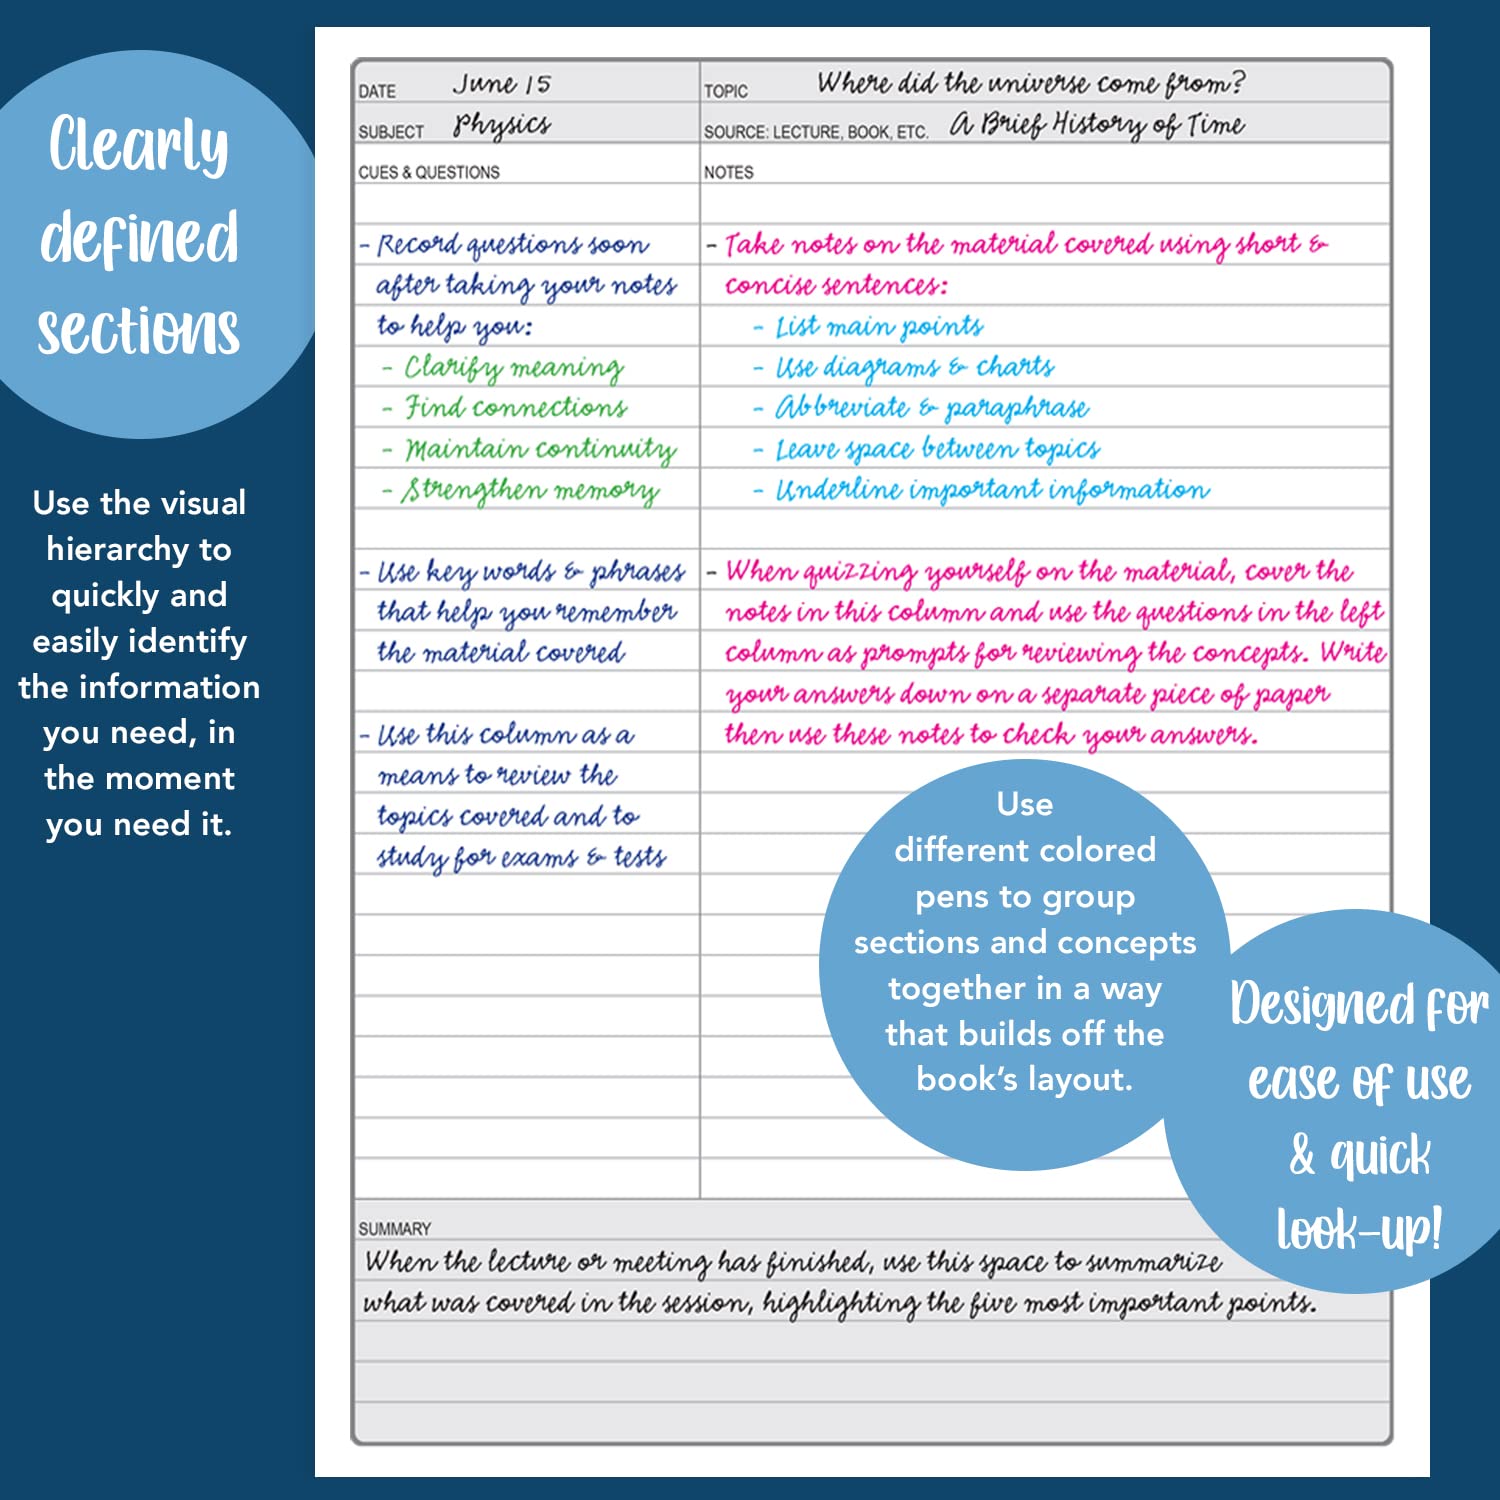 Clearly
defined
sections
Use the visual
hierarchy to
quickly and
easily identify
the information
you need, in
the moment
you need it.
DATE June 15
TOPIC Where did the universe come from?
SUBJECT Physics
SOURCE: LECTURE, BOOK, ETC. A Brief History of Time
CUES & QUESTIONS
- Record questions soon
after taking your notes
to help you:
- Clarify meaning
- Find connections
- Maintain continuity
- Strengthen memory
- Use key words & phrases
that help you remember
the material covered
- Use this column as a
means to review the
topics covered and to
study for exams & tests
NOTES
- Take notes on the material covered using short &
concise sentences:
- List main points
- Use diagrams & charts
- Abbreviate & paraphrase
- Leave space between topics
- Underline important information
- When quizzing yourself on the material, cover the
notes in this column and use the questions in the left
column as prompts for reviewing the concepts. Write
your answers down on a separate piece of paper
then use these notes to check your answers.
Use
different colored
pens to group
sections and concepts
together in a way
that builds off the
book's layout.
Designed for
ease of use
& quick
look-up!
SUMMARY
When the lecture or meeting has finished, use this space to summarize
what was covered in the session, highlighting the five most important points.